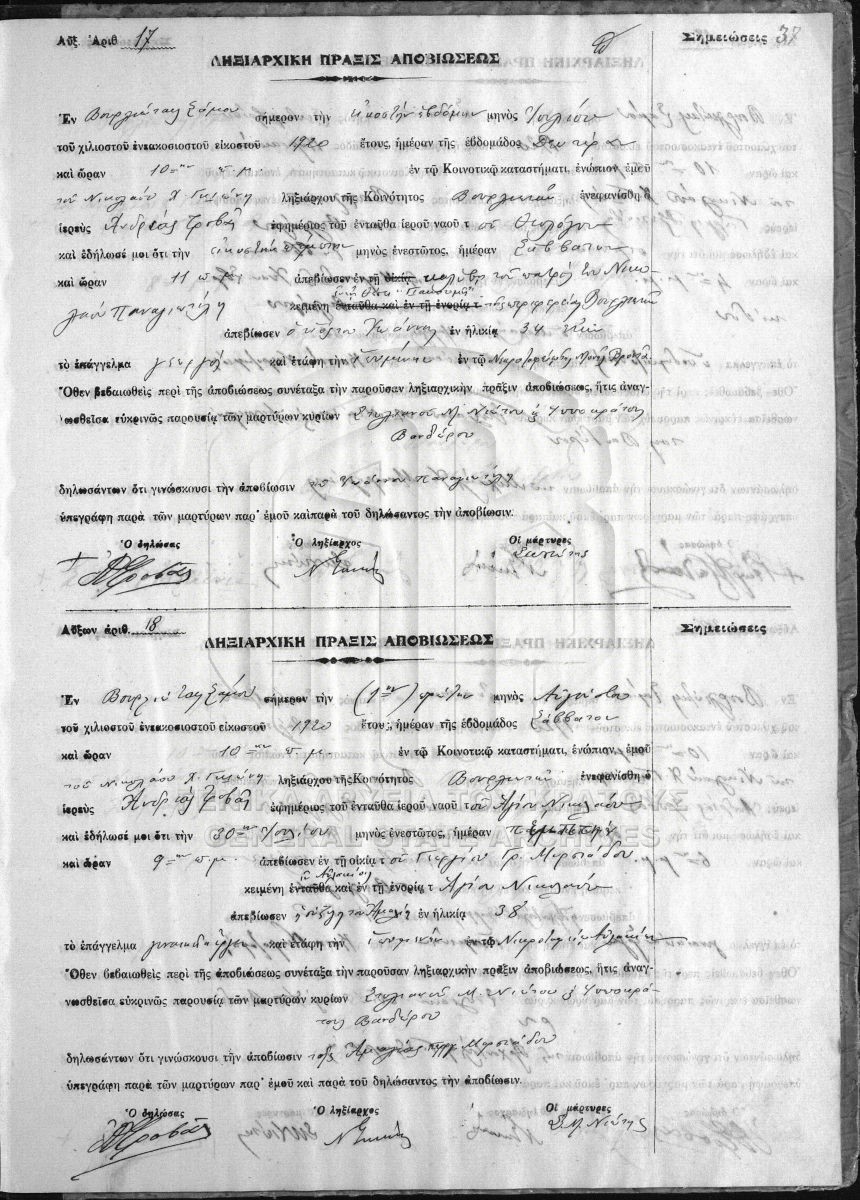 Αὔξ. Ἀριθ. 17
Σημειώσεις 37
ΛΗΞΙΑΡΧΙΚΗ ΠΡΑΞΙΣ ΑΠΟΒΙΩΣΕΩΣ
Ἐν Βουρλιώταις Σάμου σήμερον τὴν εἰκοστὴν ἑβδόμην μηνὸς Ἰουλίου
τοῦ χιλιοστοῦ ἐννεακοσιοστοῦ εἰκοστοῦ 1920 ἔτους, ἡμέραν τῆς ἑβδομάδος Δευτέραν
καὶ ὥραν 10ην π.μ. ἐν τῷ Κοινοτικῷ καταστήματι, ἐνώπιον ἐμοῦ
τοῦ Νικολάου Χ. ληξιάρχου τῆς Κοινότητος Βουρλιωτῶν ἐνεφανίσθη ὁ
ἱερεὺς Ἀνδρέας Τροβᾶς ἐφημέριος τοῦ ἐνταῦθα ἱεροῦ ναοῦ τοῦ Θεολόγου
καὶ ἐδήλωσέ μοι ὅτι τὴν εἰκοστὴν πέμπτην μηνὸς ἐνεστῶτος, ἡμέραν Σάββατον
καὶ ὥραν 11 π.μ. ἀπεβίωσεν ἐν τῇ οἰκίᾳ καλύβῃ τοῦ πατρός του Νικο-
λάου Παναγιωτίδη κειμένῃ ἐνταῦθα καὶ ἐν τῇ ἐνορίᾳ τ τῆς περιφερείας Βουρλιωτῶν
ἀπεβίωσεν ὁ υἱός του Ἰωάννης ἐν ἡλικίᾳ 34 ἐτῶν
τὸ ἐπάγγελμα γεωργὸς καὶ ἐτάφη τὴν ἐν τῷ Νεκροταφείῳ Μονῆς Βροντᾶ
Ὅθεν βεβαιωθεὶς περὶ τῆς ἀποβιώσεως συνέταξα τὴν παροῦσαν ληξιαρχικὴν πρᾶξιν ἀποβιώσεως, ἥτις ἀναγ-
νωσθεῖσα εὐκρινῶς παρουσίᾳ τῶν μαρτύρων κυρίων Στυλιανοῦ Μ. Νιώτου & Ἱπποκράτους
Βανδώρου
δηλωσάντων ὅτι γινώσκουσι τὴν ἀποβίωσιν τοῦ Ἰωάννου Παναγιωτίδη
ὑπεγράφη παρὰ τῶν μαρτύρων παρ' ἐμοῦ καὶ παρὰ τοῦ δηλώσαντος τὴν ἀποβίωσιν.
Ὁ δηλώσας Ὁ ληξίαρχος Οἱ μάρτυρες
Αὔξων ἀριθ. 18
Σημειώσεις
ΛΗΞΙΑΡΧΙΚΗ ΠΡΑΞΙΣ ΑΠΟΒΙΩΣΕΩΣ
Ἐν Βουρλιώταις Σάμου σήμερον τὴν (1ην) πρώτην μηνὸς Αὐγούστου
τοῦ χιλιοστοῦ ἐννεακοσιοστοῦ εἰκοστοῦ 1920 ἔτους, ἡμέραν τῆς ἑβδομάδος Σάββατον
καὶ ὥραν 10ην π.μ. ἐν τῷ Κοινοτικῷ καταστήματι, ἐνώπιον ἐμοῦ
τοῦ Νικολάου Χ. ληξιάρχου τῆς Κοινότητος Βουρλιωτῶν ἐνεφανίσθη ὁ
ἱερεὺς Ἀνδρέας Τροβᾶς ἐφημέριος τοῦ ἐνταῦθα ἱεροῦ ναοῦ τοῦ Ἁγίου Νικολάου
καὶ ἐδήλωσέ μοι ὅτι τὴν 30ην Ἰουλίου μηνὸς ἐνεστῶτος, ἡμέραν Πέμπτην
καὶ ὥραν 9ην π.μ. ἀπεβίωσεν ἐν τῇ οἰκίᾳ τοῦ Γεωργίου Γρ. Μυρσιάδου
κειμένῃ ἐνταῦθα καὶ ἐν τῇ ἐνορίᾳ τ Ἁγίου Νικολάου
ἀπεβίωσεν ἡ σύζυγός του Ἀμαλία ἐν ἡλικίᾳ 38
τὸ ἐπάγγελμα καὶ ἐτάφη τὴν ἐν τῷ Νεκροταφείῳ
Ὅθεν βεβαιωθεὶς περὶ τῆς ἀποβιώσεως συνέταξα τὴν παροῦσαν ληξιαρχικὴν πρᾶξιν ἀποβιώσεως, ἥτις ἀναγ-
νωσθεῖσα εὐκρινῶς παρουσίᾳ τῶν μαρτύρων κυρίων Στυλιανοῦ Μ. Νιώτου & Ἱπποκρά-
τους Βανδώρου
δηλωσάντων ὅτι γινώσκουσι τὴν ἀποβίωσιν τῆς Ἀμαλίας Μυρσιάδου
ὑπεγράφη παρὰ τῶν μαρτύρων παρ' ἐμοῦ καὶ παρὰ τοῦ δηλώσαντος τὴν ἀποβίωσιν.
Ὁ δηλώσας Ὁ ληξίαρχος Οἱ μάρτυρες
Σ. Μ. Νιώτης
GENERAL STATE ARCHIVES